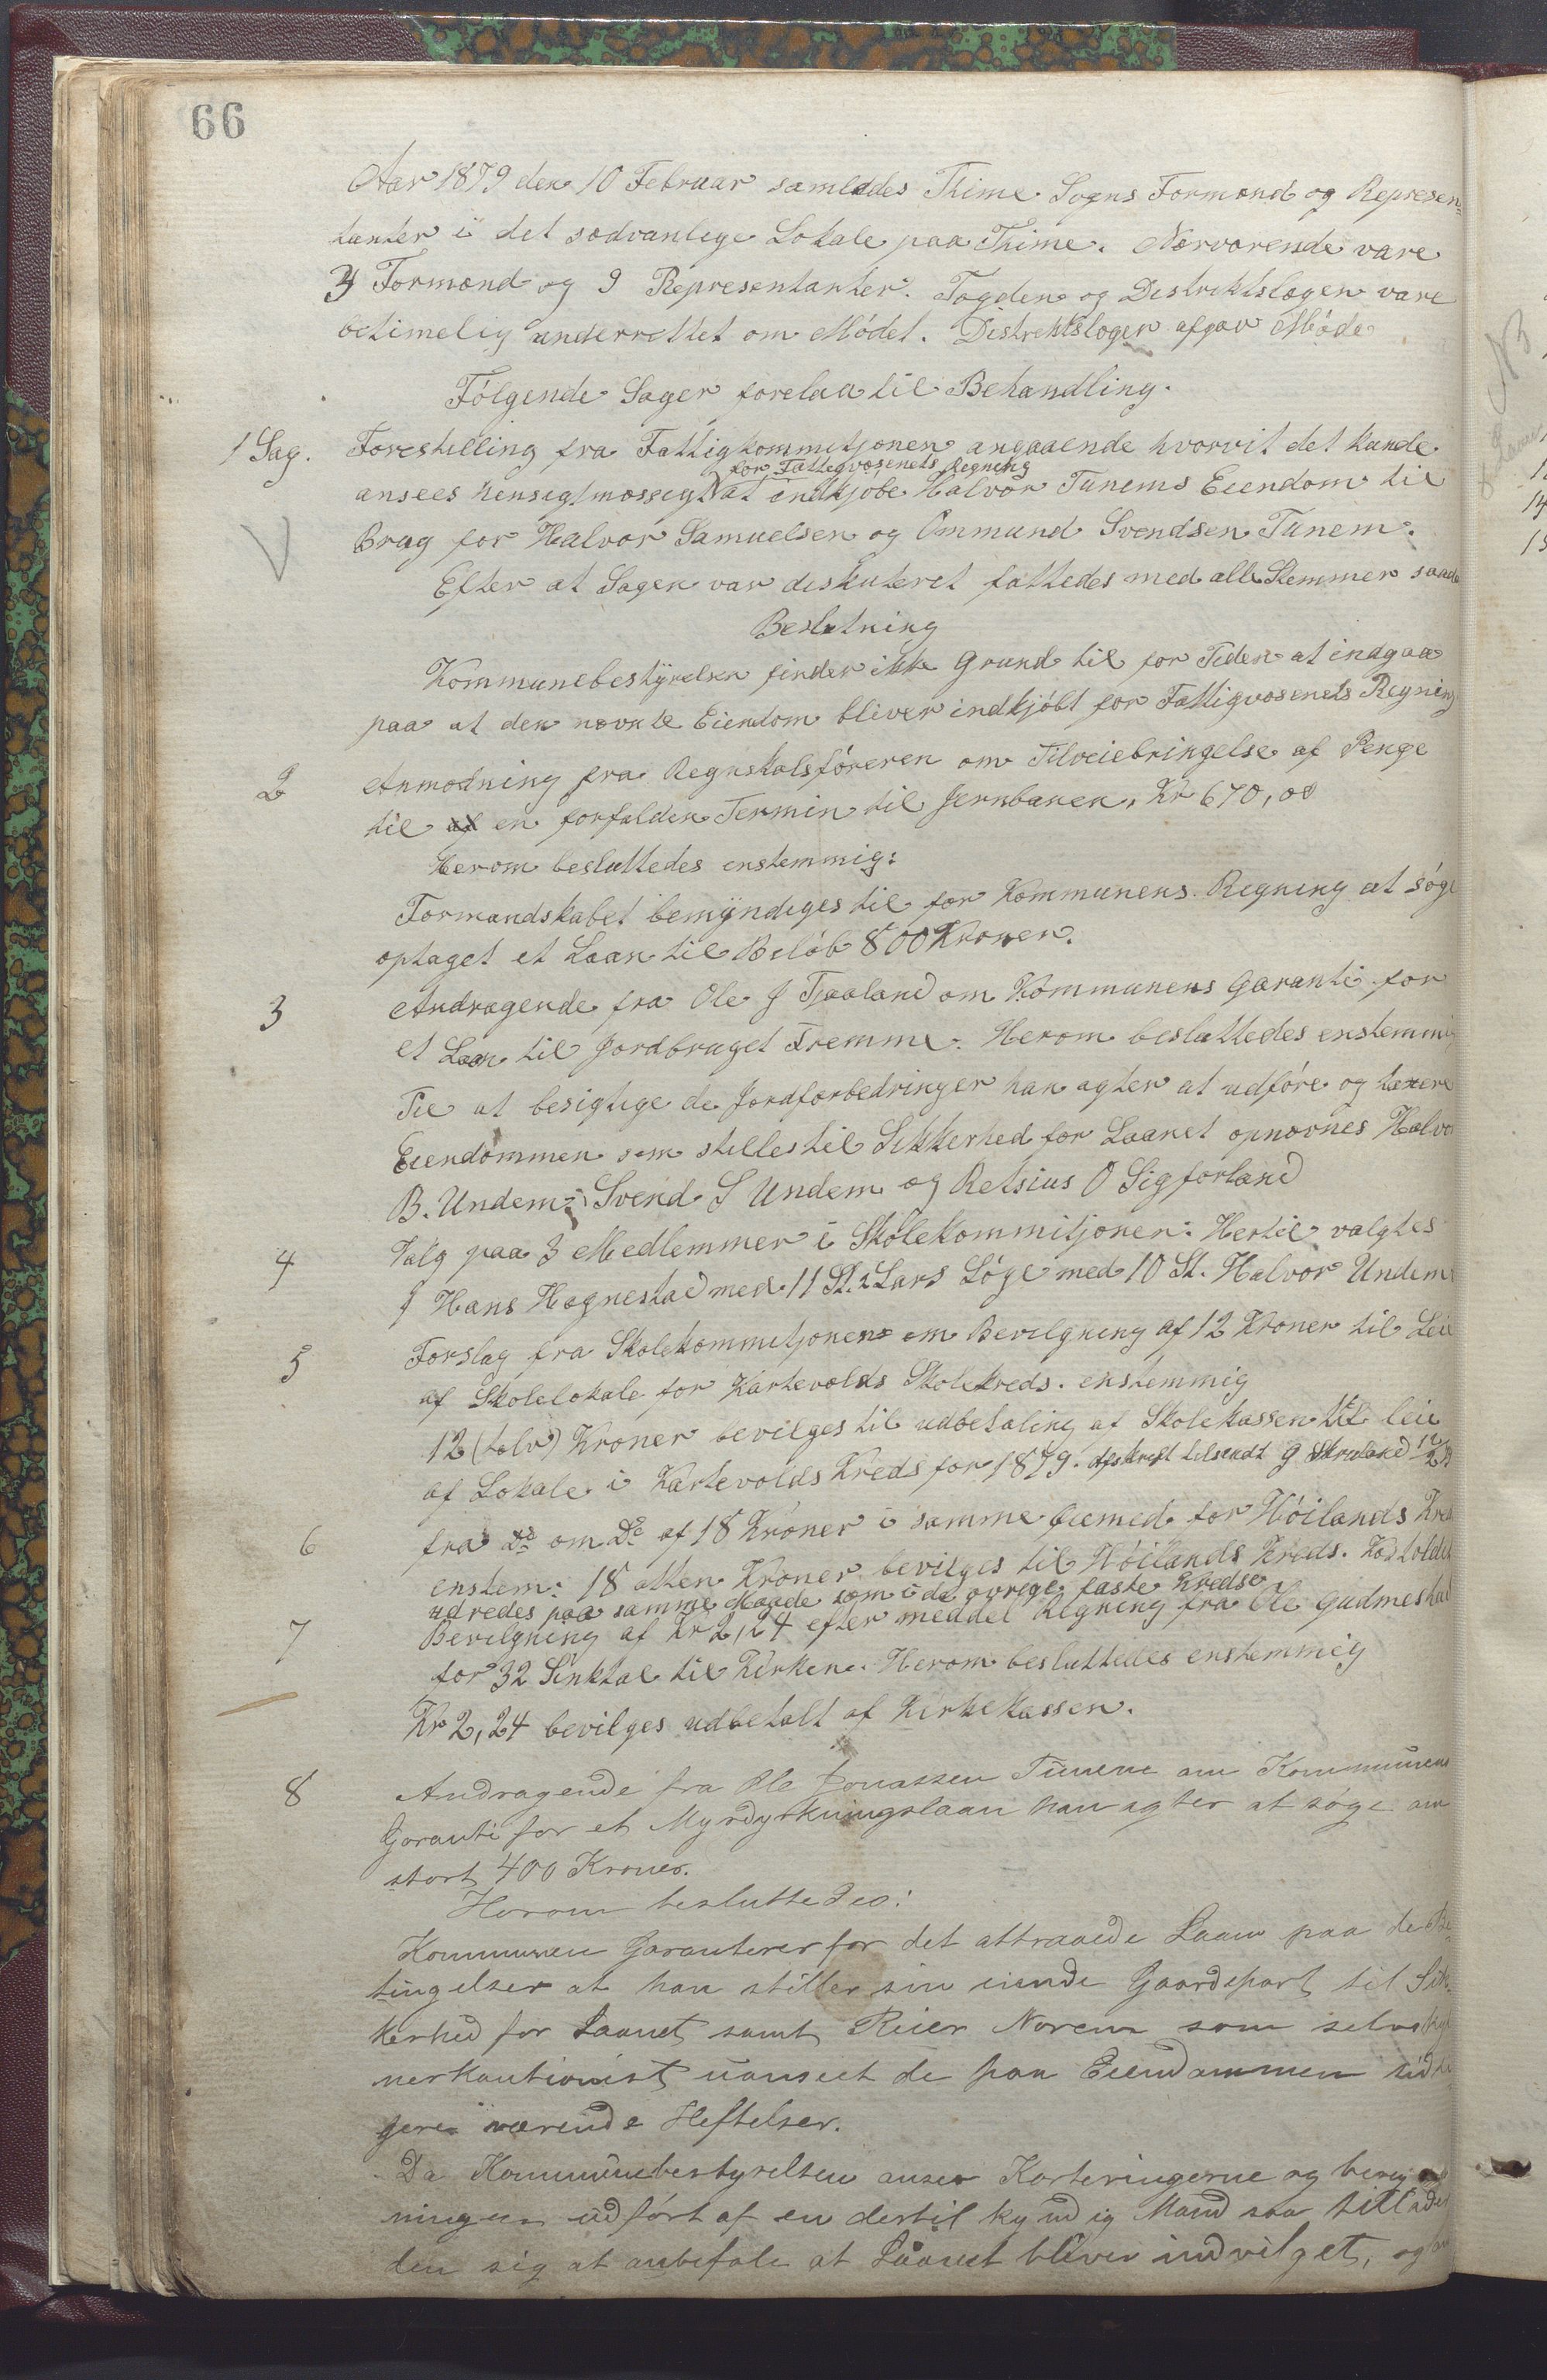 66
Aar 1879 den 10 Februar samledes Thime Sogns Formænd og Represen-
tanter i det sædvanlige Lokale paa Thime. Nærværende vare
3 Formænd og 9 Representanter. Fogden og Distriktslægen vare
betimelig underrettet om Mødet. Distriktslægen afgav Møde
Følgende Sager forelaa til Behandling.
1 Sag. Forestilling fra Fattigkommitjonen angaaende hvorvit det kande
for Fattigvæsenets Regning
ansees hensigtmæssigt at indkjøbe Halvor Tunems Eiendom til
Brug for Halvor Samuelsen og Ommund Svendsen Tunem.
Efter at Sagen var diskuteret fattedes med alle Stemmer saad
Beslutning
Kommunebestyrelsen finder ikke Grund til for Tiden at indgaa
paa at den nævnte Eiendom bliver indkjøbt for Fattigvæsenets Regning
2 Anmodning fra Regnskabsføreren om Tilveiebringelse af Penge
til en forfalden Termin til Jernbanen, Kr 670,00
Herom besluttedes enstemmig:
Formandskabet bemyndiges til for Kommunens Regning at søge
optaget et Laan til Beløb 800 Kroner.
3 Andragende fra Ole J Tjaaland om Kommunens Garanti for
et Laan til Jordbruget Fremme. Herom besluttedes enstemmig
Til at besigtige de Jordforbedringer han agter at udføre og taxere
Eiendommen som stilles til Sikkerhed for Laanet opnævnes Halvor
B. Undem, Svend S Undem og Retsius O Sigforland
4 Valg paa 3 Medlemmer i Skolekommitjonen: Hertil valgtes
1 Hans Hognestad med 11 St. 2 Lars Løge med 10 St. Halvor Undem
5 Forslag fra Skolekommitjonen om Bevilgning af 12 Kroner til Leie
af Skolelokale for Kartevolds Skolekreds. enstemmig
12 (tolv) Kroner bevilges til udbetaling af Skolekassen til leie
af Lokale i Kartevolds Kreds for 1879. Afskrift tilsendt G Skruland 12/2
6 fra Do om Do af 18 Kroner i samme Øiemed for Høilands Kreds
enstem: 18 atten Kroner bevilges til Høilands Kreds. Kostholdet
udredes paa samme Maade som i de øvrige faste Kredse
7 Bevilgning af Kr 2,24 efter meddel Regning fra Ole Gudmestad
for 32 Sinktal til Kirken. Herom besluttedes enstemmig
Kr 2,24 bevilges udbetalt af Kirkekassen.
8 Andragende fra Ole Jonassen Tunem om Kommunens
Garanti for et Myrdyrkningslaan han agter at søge om
stort 400 Kroner.
Herom besluttedes:
Kommunen Garanterer for det attraaede Laan paa de Be-
tingelser at han stiller sin eiende Gaardspart til Sik-
kerhed for Laanet samt Reier Norem som selvskyld
nerkautionist uanseet de paa Eiendommen tidli
gere værende Heftelser.
Da Kommunebestyrelsen anser Karteringerne og bereg
ningen udført af en dertil kyndig Mand saa tillader
den sig at anbefale at Laanet bliver indvilget, og